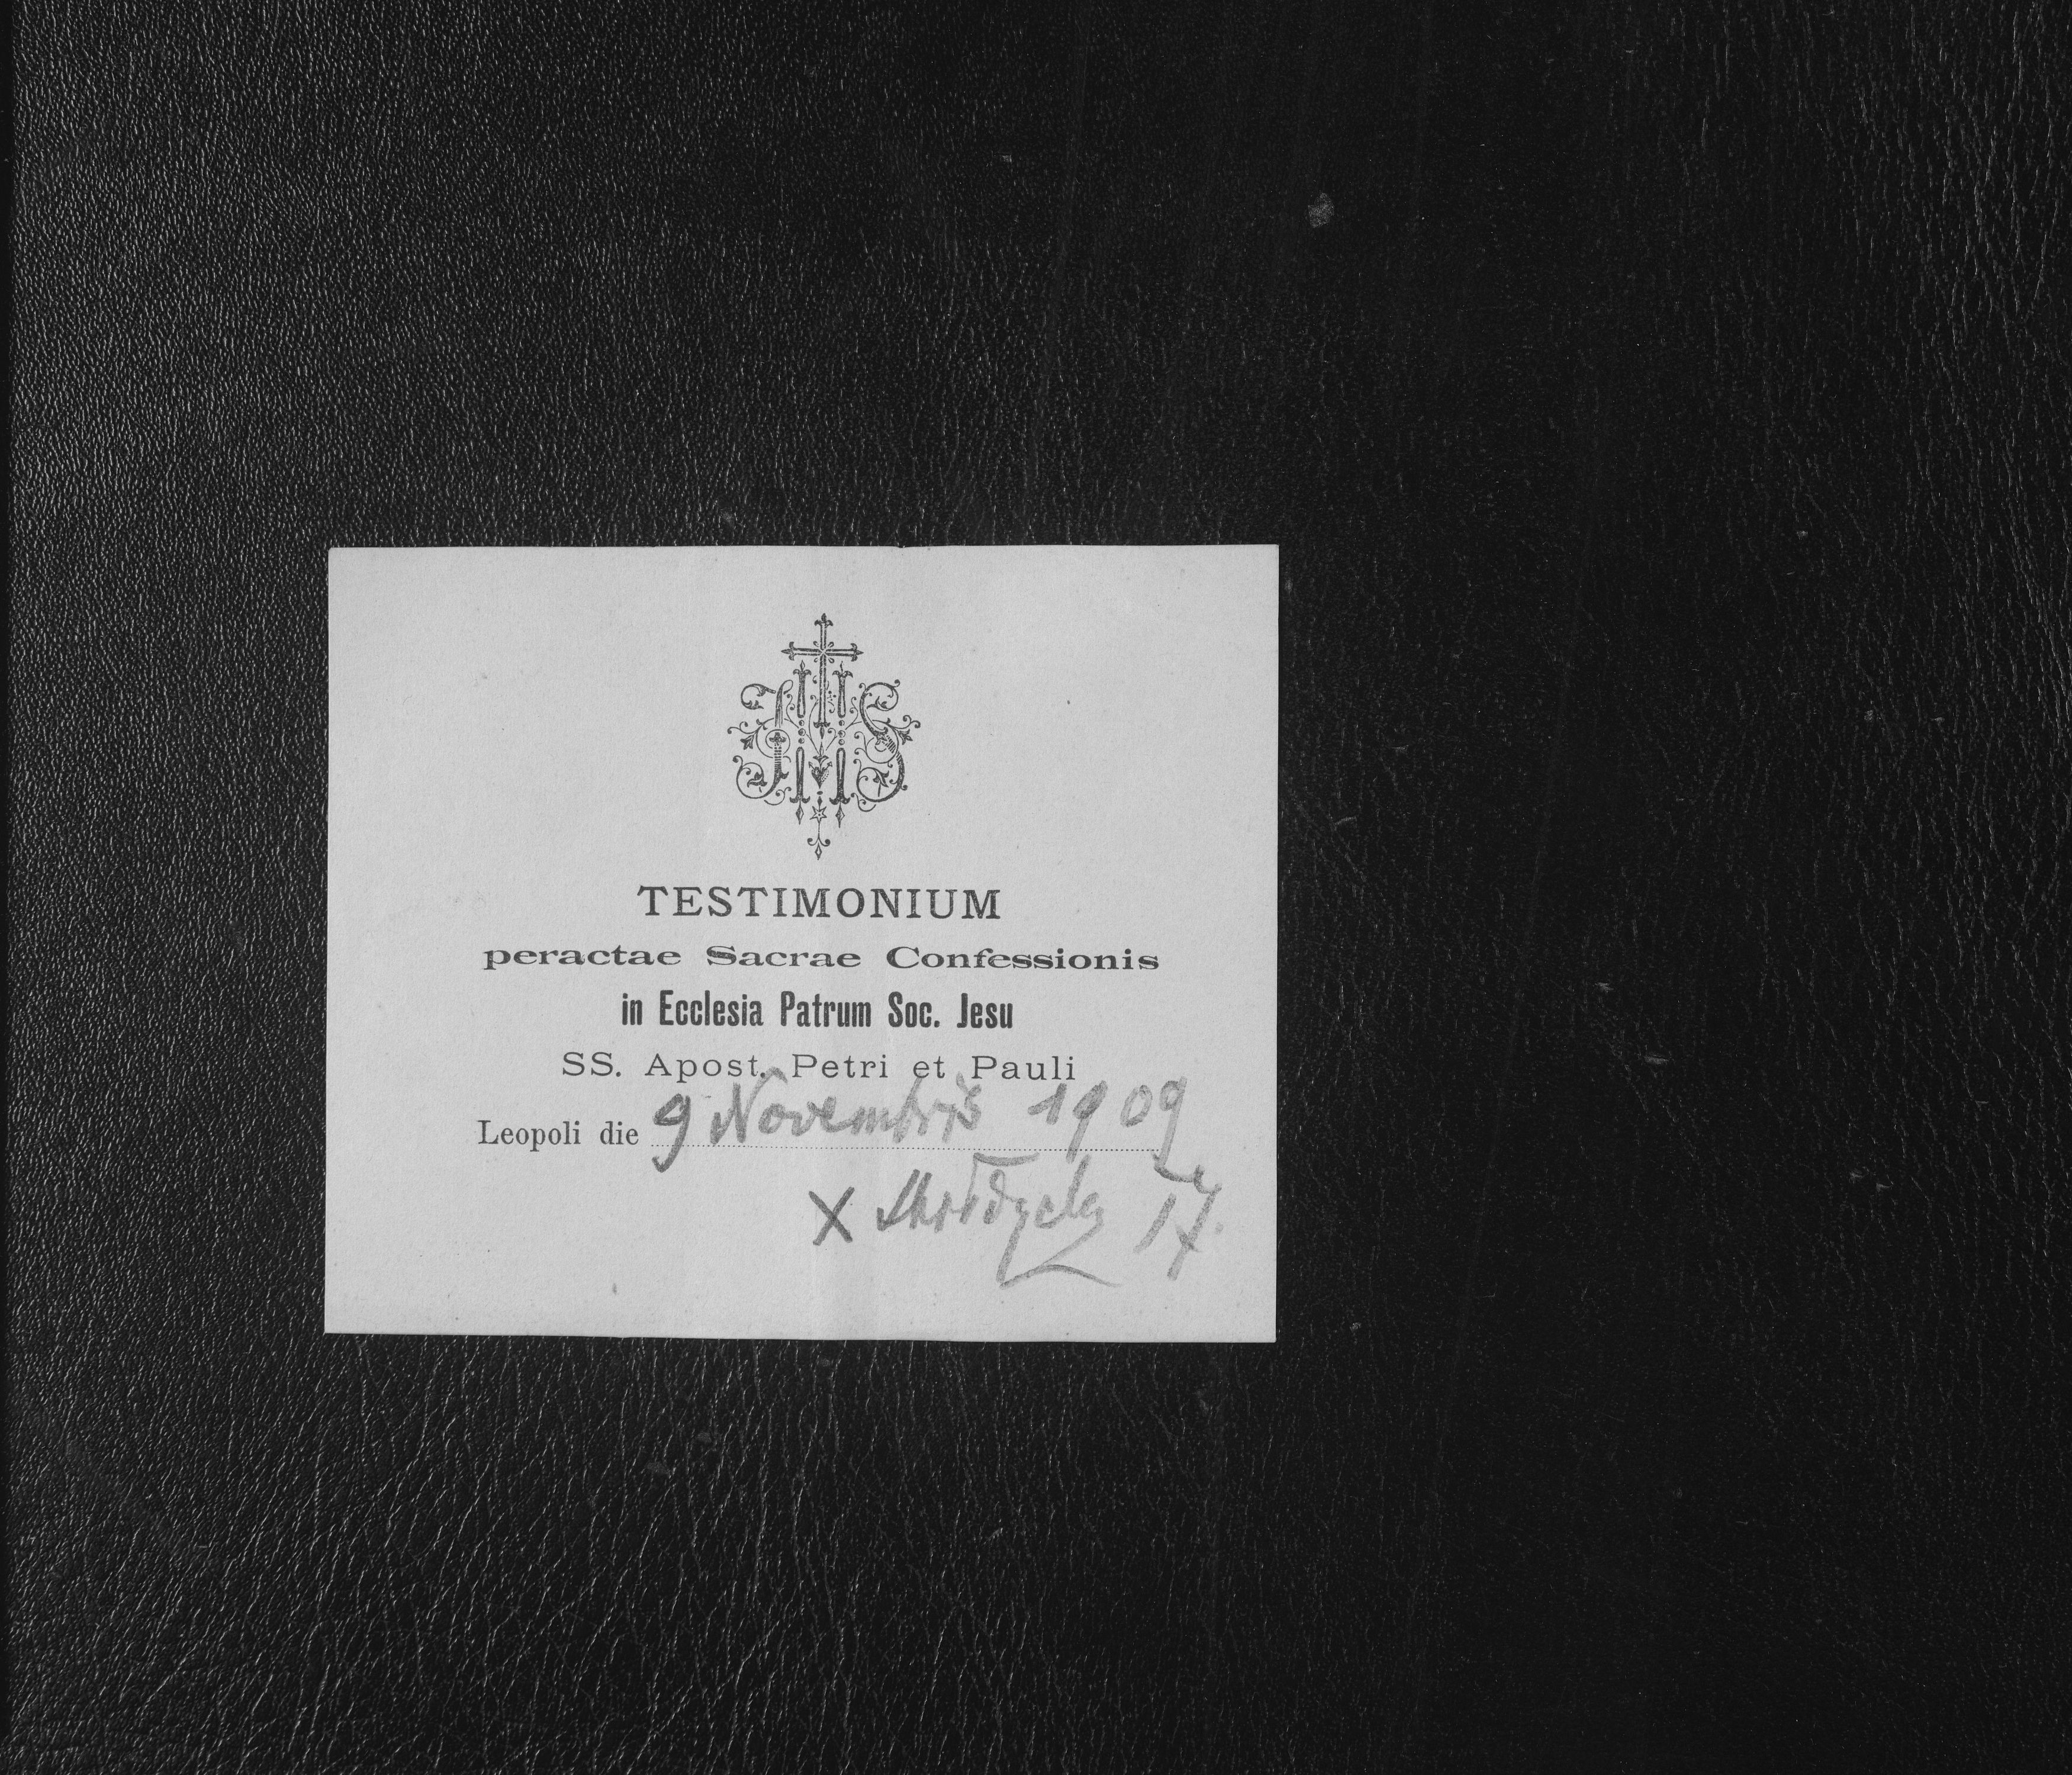 IHS
TESTIMONIUM
peractae Sacrae Confessionis
in Ecclesia Patrum Soc. Jesu
SS. Apost. Petri et Pauli
Leopoli die 9 Novembris 1909
X